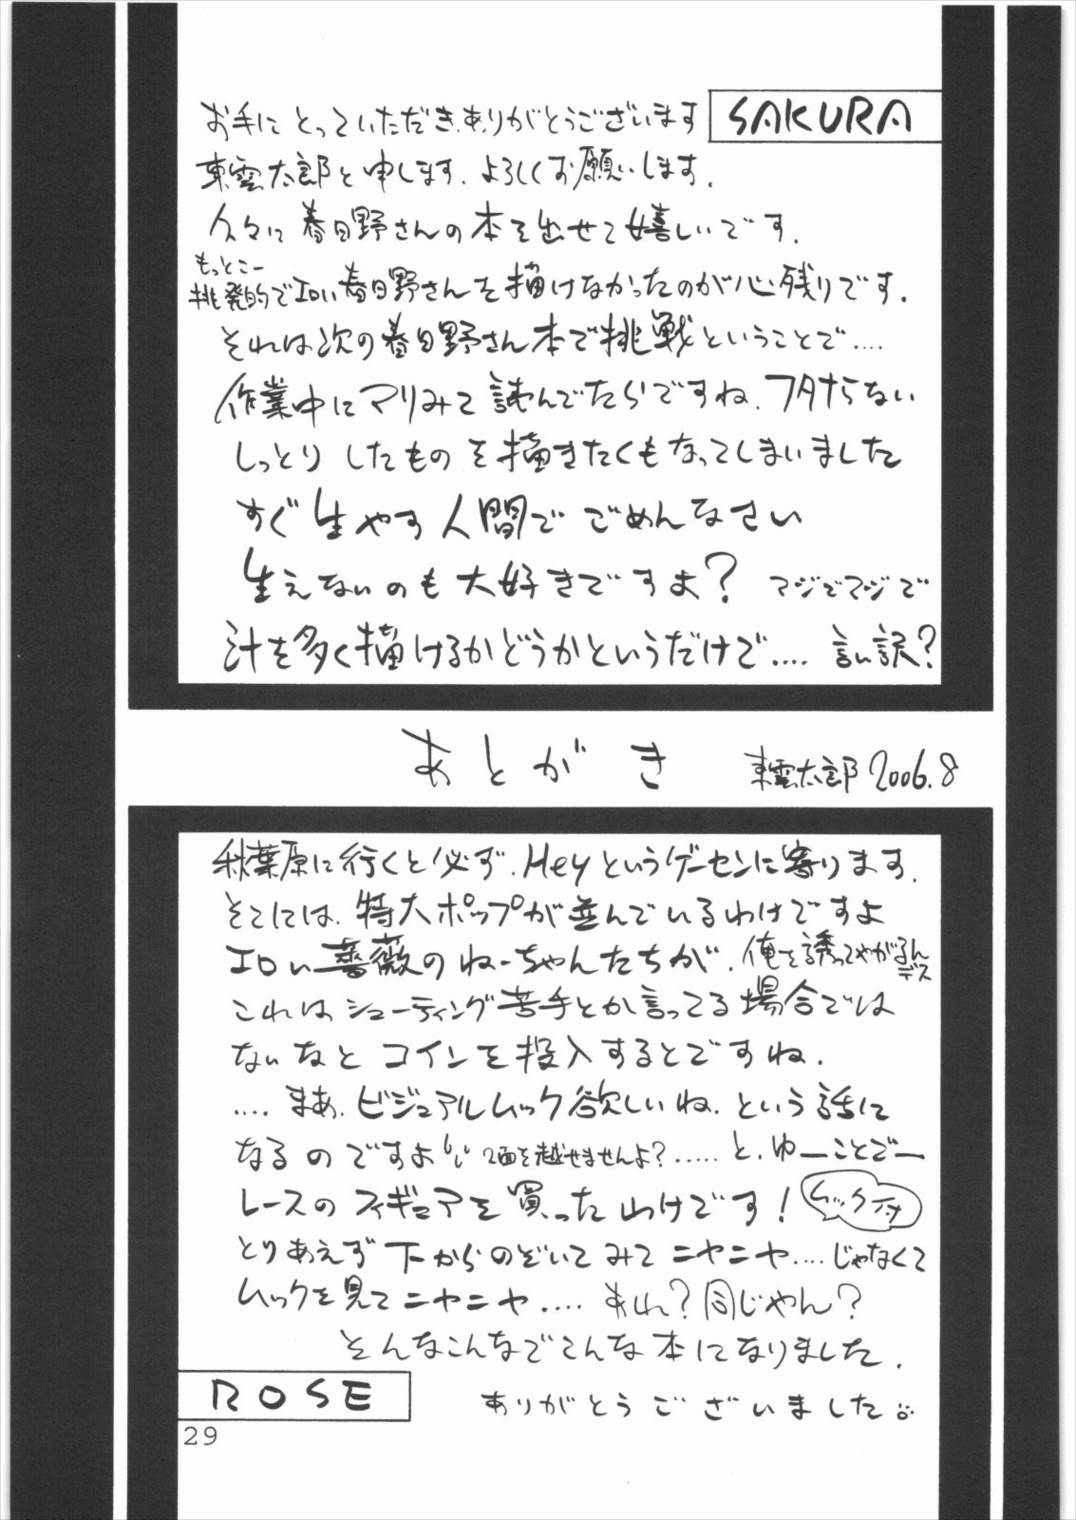 SAKURA
お手にとっていただきありがとうございます
東雲太郎と申します.よろしくお願いします.
久々に春日野さんの本を出せて嬉しいです.
もっとこー
挑発的でエロい春日野さんを描けなかったのが心残りです.
それは次の春日野さん本で挑戦ということで....
作業中にマリみて読んでたらですね.フタナらない
しっとりしたものを描きたくもなってしまいました
すぐ生やす人間でごめんなさい
生えないのも大好きですよ? マジでマジで
汁を多く描けるかどうかというだけで.... 言い訳?
あとがき 東雲太郎 2006.8
秋葉原に行くと必ず.Heyというゲーセンに寄ります.
そこには.特大ポップが並んでいるわけですよ
エロい薔薇のねーちゃんたちが.俺を誘ってやがるんデス
これはシューティング苦手とか言ってる場合では
ないなとコインを投入するとですね.
....まあ.ビジュアルムック欲しいね.という話に
なるのですよ 2面を越せませんよ?.....と.ゆーことでー
レースのフィギュアを買ったわけです! ムック付
とりあえず下からのぞいてみてニヤニヤ....じゃなくて
ムックを見てニヤニヤ....あれ?同じやん?
そんなこんなでこんな本になりました.
ROSE
ありがとうございました
29